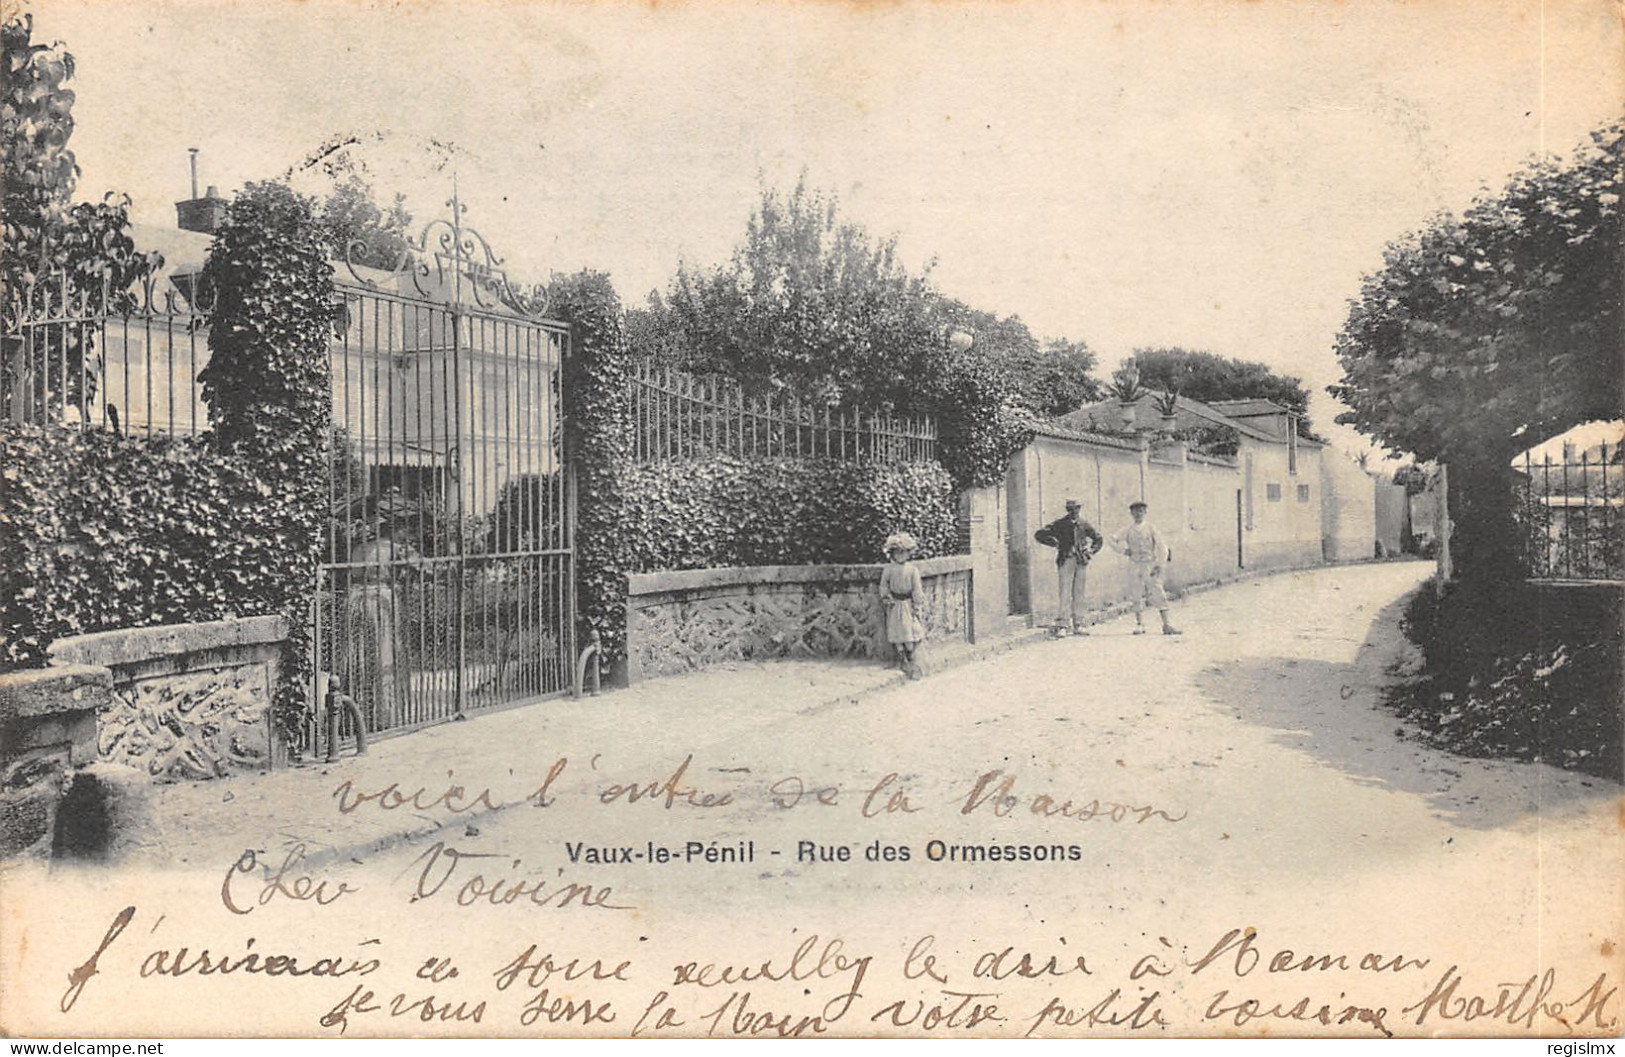 voici l'entré de la Maison
Vaux-le-Pénil - Rue des Ormessons
Cher Voisine
J'arriverais ce soire veuilley le dire à Maman
je vous serre la Main votre petite voisine Marthe M.
delcampe.net
regislmx